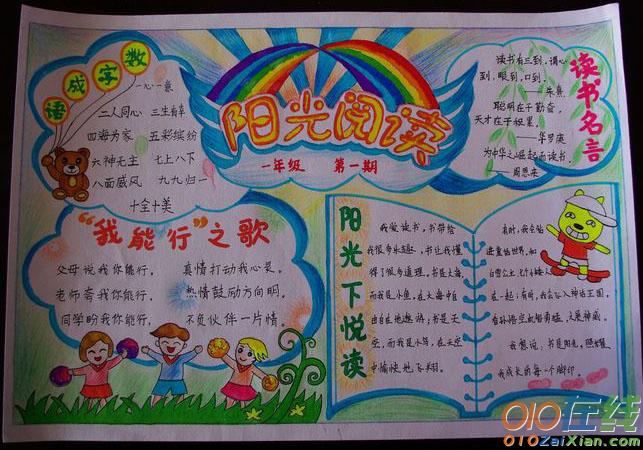 数字成语
一心一意
二人同心 三生有幸
四海为家 五彩缤纷
六神无主 七上八下
八面威风 九九归一
十全十美
阳光阅读
一年级 第一期
读书名言
读书有三到,谓心
到,眼到,口到。
——朱熹
聪明在于勤奋,
天才在于积累。
——华罗庚
为中华之崛起而读书。
——周恩来
“我能行”之歌
父母说我你能行, 真情打动我心灵。
老师夸我你能行, 热情鼓励方向明。
同学盼我你能行, 不负伙伴一片情。
阳光下悦读
我爱读书,书带给
我很多乐趣,书让我懂
得了很多道理。书是大海
而我是小鱼,在大海中自
由自在地遨游;书是天
空,而我是小鸟,在天空
中愉快地飞翔。
有时,我会钻
进童话世界,和
白雪公主、七个小矮人
在一起;有时,我会飞入神话王国,
与孙悟空 大展神威。
我想说,书是阳光,照耀
我成长的每一个脚印。
010在线
010ZaiXian.com